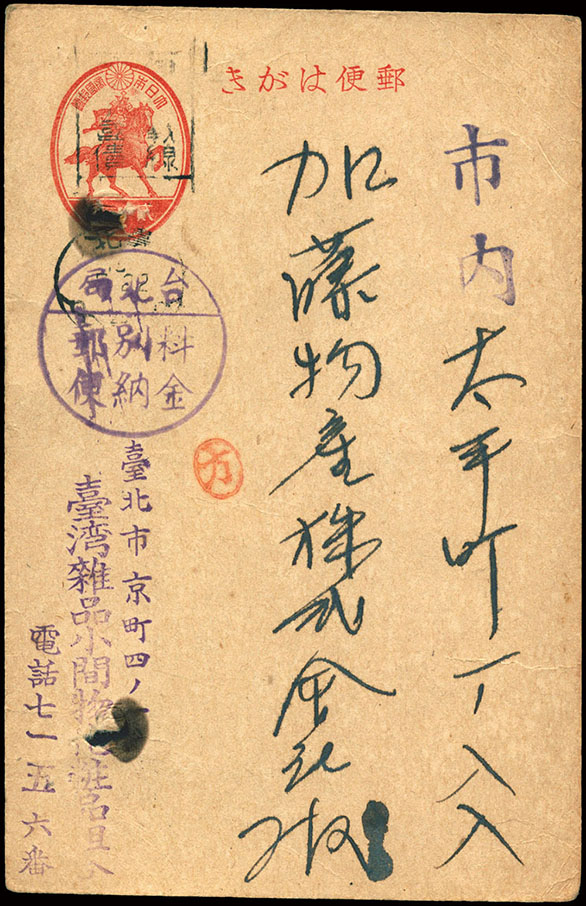 郵便はがき
大日本帝國郵便
市内太平町一ノ八八
加藤物産株式会社
台北局
料金
別納
郵便
臺北市京町四ノ
臺湾雜品小間物
電話七一五六番